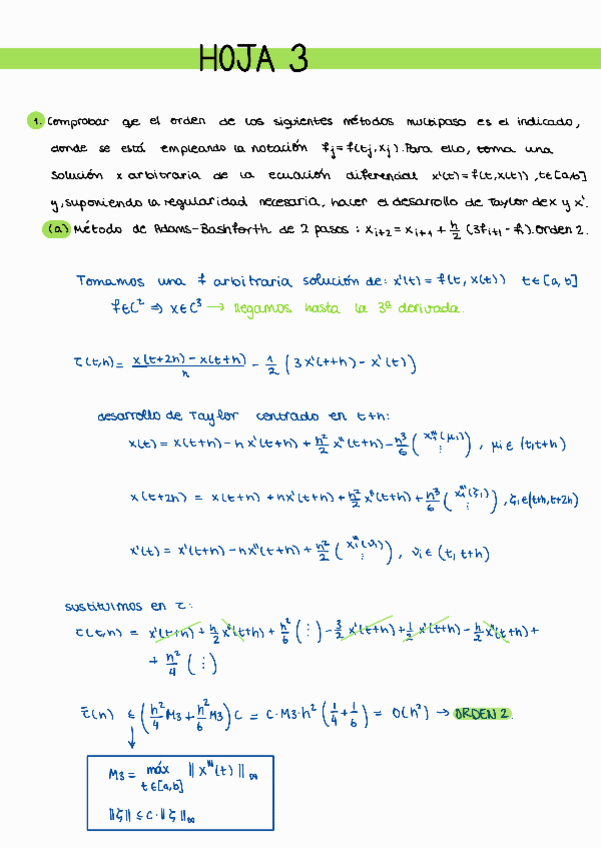 HOJA 3
1. Comprobar que el orden de los siguientes métodos multipaso es el indicado,
donde se está empleando la notación fj = f(tj, xj). Para ello, toma una
solución x arbitraria de la ecuación diferencial x'(t) = f(t, x(t)), t∈[a,b]
y, suponiendo la regularidad necesaria, hacer el desarrollo de Taylor de x y x'.
(a) Método de Adams-Bashforth de 2 pasos: x_{i+2} = x_{i+1} + h/2 (3f_{i+1} - f_i). Orden 2.
Tomamos una f arbitraria solución de: x'(t) = f(t, x(t)) t∈[a,b]
f∈C² ⇒ x∈C³ → llegamos hasta la 3ª derivada.
τ(t,h) = (x(t+2h) - x(t+h))/h - 1/2 (3x'(t+h) - x'(t))
desarrollo de Taylor centrado en t+h:
x(t) = x(t+h) - hx'(t+h) + h²/2 x''(t+h) - h³/6 (x₁'''(μ₁) ⋮), μi ∈ (t, t+h)
x(t+2h) = x(t+h) + hx'(t+h) + h²/2 x''(t+h) + h³/6 (x₁'''(ζ₁) ⋮), ζi ∈ (t+h, t+2h)
x'(t) = x'(t+h) - hx''(t+h) + h²/2 (x₁'''(νi) ⋮), νi ∈ (t, t+h)
sustituimos en τ:
τ(t,h) = x'(t+h) + h/2 x''(t+h) + h²/6 (⋮) - 3/2 x'(t+h) + 1/2 x'(t+h) - h/2 x''(t+h) +
+ h²/4 (⋮)
τ̄(h) ≤ (h²/4 M3 + h²/6 M3) C = C·M3·h² (1/4 + 1/6) = O(h²) → ORDEN 2.
M3 = máx t∈[a,b] ‖x'''(t)‖∞
‖ζ‖ ≤ C·‖ζ‖∞